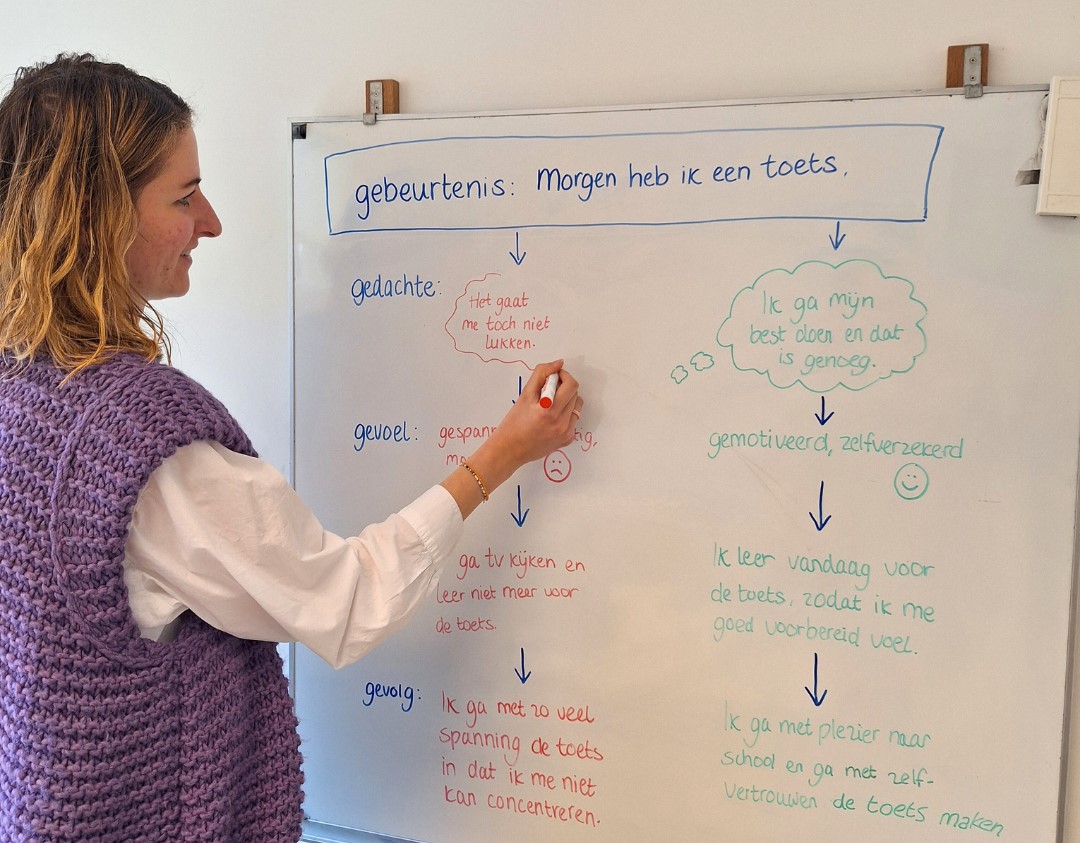 gebeurtenis: Morgen heb ik een toets.
gedachte:
Het gaat
me toch niet
lukken.
Ik ga mijn
best doen en dat
is genoeg.
gevoel:
gemotiveerd, zelfverzekerd
ga tv kijken en
leer niet meer voor
de toets.
Ik leer vandaag voor
de toets, zodat ik me
goed voorbereid voel.
gevolg:
Ik ga met zo veel
spanning de toets
in dat ik me niet
kan concentreren.
Ik ga met plezier naar
school en ga met zelf-
vertrouwen de toets maken